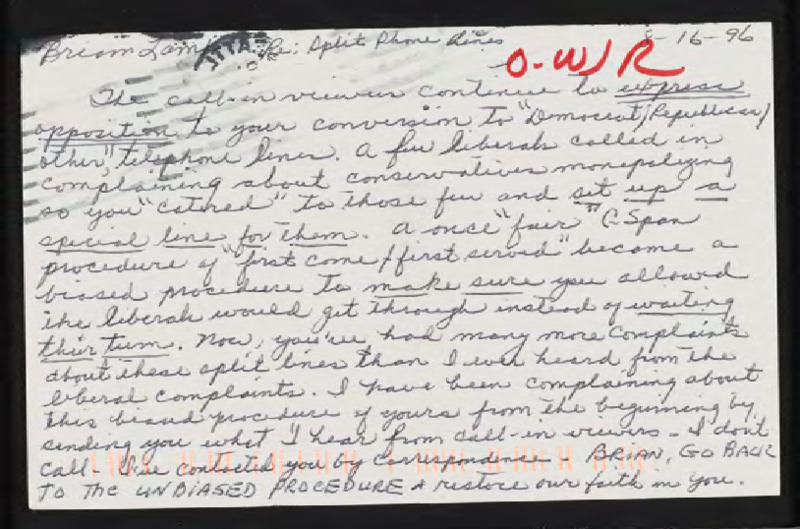 Brian Lamb Re: Split Phone Lines 8-16-96
O-W/R
The call-in viewers continue to express
opposition to your conversion to "Democrat/Republican/
other" telephone lines. A few liberals called in
complaining about conservatives monopolizing
so you "catered" to those few and set up a
special line for them. A once "fair" C-Span
procedure of "first come/first served" became a
biased procedure to make sure you allowed
the liberals would get through instead of waiting
their turn. Now, you've had many more complaints
about these split lines than I ever heard from the
liberal complaints. I have been complaining about
this biased procedure of yours from the beginning by
sending you what I hear from call-in viewers - I don't
call. I've contacted you by correspondence. BRIAN, GO BACK
TO THE UNBIASED PROCEDURE & restore our faith in you.